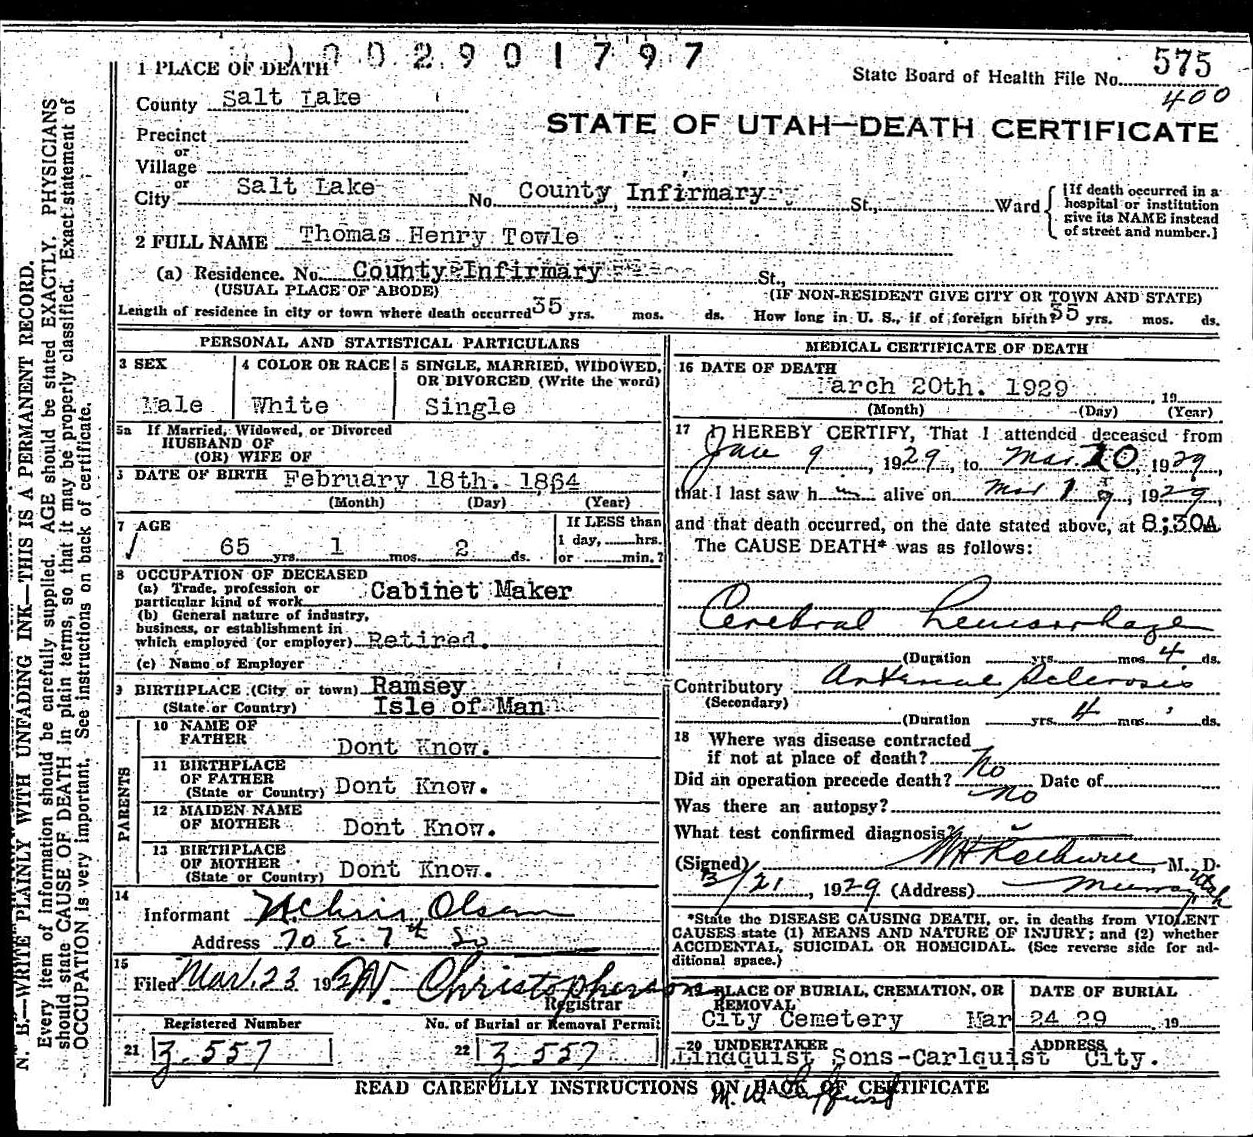 1002901797
1 PLACE OF DEATH
State Board of Health File No. 575
400
County Salt Lake
STATE OF UTAH—DEATH CERTIFICATE
Precinct
or
Village
or
City Salt Lake No. County Infirmary St., Ward
[If death occurred in a
hospital or institution
give its NAME instead
of street and number.]
2 FULL NAME Thomas Henry Towle
(a) Residence. No. County Infirmary St.,
(USUAL PLACE OF ABODE) (IF NON-RESIDENT GIVE CITY OR TOWN AND STATE)
Length of residence in city or town where death occurred 35 yrs. mos. ds. How long in U. S., if of foreign birth? 35 yrs. mos. ds.
PERSONAL AND STATISTICAL PARTICULARS
3 SEX
Male
4 COLOR OR RACE
White
5 SINGLE, MARRIED, WIDOWED,
OR DIVORCED (Write the word)
Single
5a If Married, Widowed, or Divorced
HUSBAND OF
(OR) WIFE OF
6 DATE OF BIRTH February 18th. 1864
(Month) (Day) (Year)
7 AGE
65 yrs. 1 mos. 2 ds.
If LESS than
1 day, hrs.
or min.?
8 OCCUPATION OF DECEASED
(a) Trade, profession or
particular kind of work Cabinet Maker
(b) General nature of industry,
business, or establishment in
which employed (or employer) Retired.
(c) Name of Employer
9 BIRTHPLACE (City or town) Ramsey
(State or Country) Isle of Man
PARENTS
10 NAME OF
FATHER Dont Know.
11 BIRTHPLACE
OF FATHER
(State or Country) Dont Know.
12 MAIDEN NAME
OF MOTHER Dont Know.
13 BIRTHPLACE
OF MOTHER
(State or Country) Dont Know.
14
Informant Chris Olsen
Address 70 E. 7th So
15
Filed Mar. 23 192 W. Christopherson
Registrar
Registered Number
21 3.557
No. of Burial or Removal Permit
22 3.557
MEDICAL CERTIFICATE OF DEATH
16 DATE OF DEATH
March 20th. 1929, 19
(Month) (Day) (Year)
17 I HEREBY CERTIFY, That I attended deceased from
Jan 9, 1929, to Mar. 20, 1929,
that I last saw him alive on Mar 19, 1929,
and that death occurred, on the date stated above, at 8:30A
The CAUSE DEATH* was as follows:
Cerebral Hemorrhage
(Duration yrs. mos. 4. ds.
Contributory Arterial Sclerosis
(Secondary)
(Duration yrs. 4 mos. ds.
18 Where was disease contracted
if not at place of death?
Did an operation precede death? No Date of
Was there an autopsy? no
What test confirmed diagnosis?
(Signed) M. D.
3/21, 1929 (Address) Murray Utah
*State the DISEASE CAUSING DEATH, or, in deaths from VIOLENT
CAUSES state (1) MEANS AND NATURE OF INJURY; and (2) whether
ACCIDENTAL, SUICIDAL OR HOMICIDAL. (See reverse side for ad-
ditional space.)
19 PLACE OF BURIAL, CREMATION, OR
REMOVAL
City Cemetery
DATE OF BURIAL
Mar 24 29, 19
20 UNDERTAKER ADDRESS
Lindquist Sons-Carlquist City.
READ CAREFULLY INSTRUCTIONS ON BACK OF CERTIFICATE
N. B.—WRITE PLAINLY WITH UNFADING INK—THIS IS A PERMANENT RECORD.
Every item of information should be carefully supplied. AGE should be stated EXACTLY. PHYSICIANS
should state CAUSE OF DEATH in plain terms, so that it may be properly classified. Exact statement of
OCCUPATION is very important. See instructions on back of certificate.